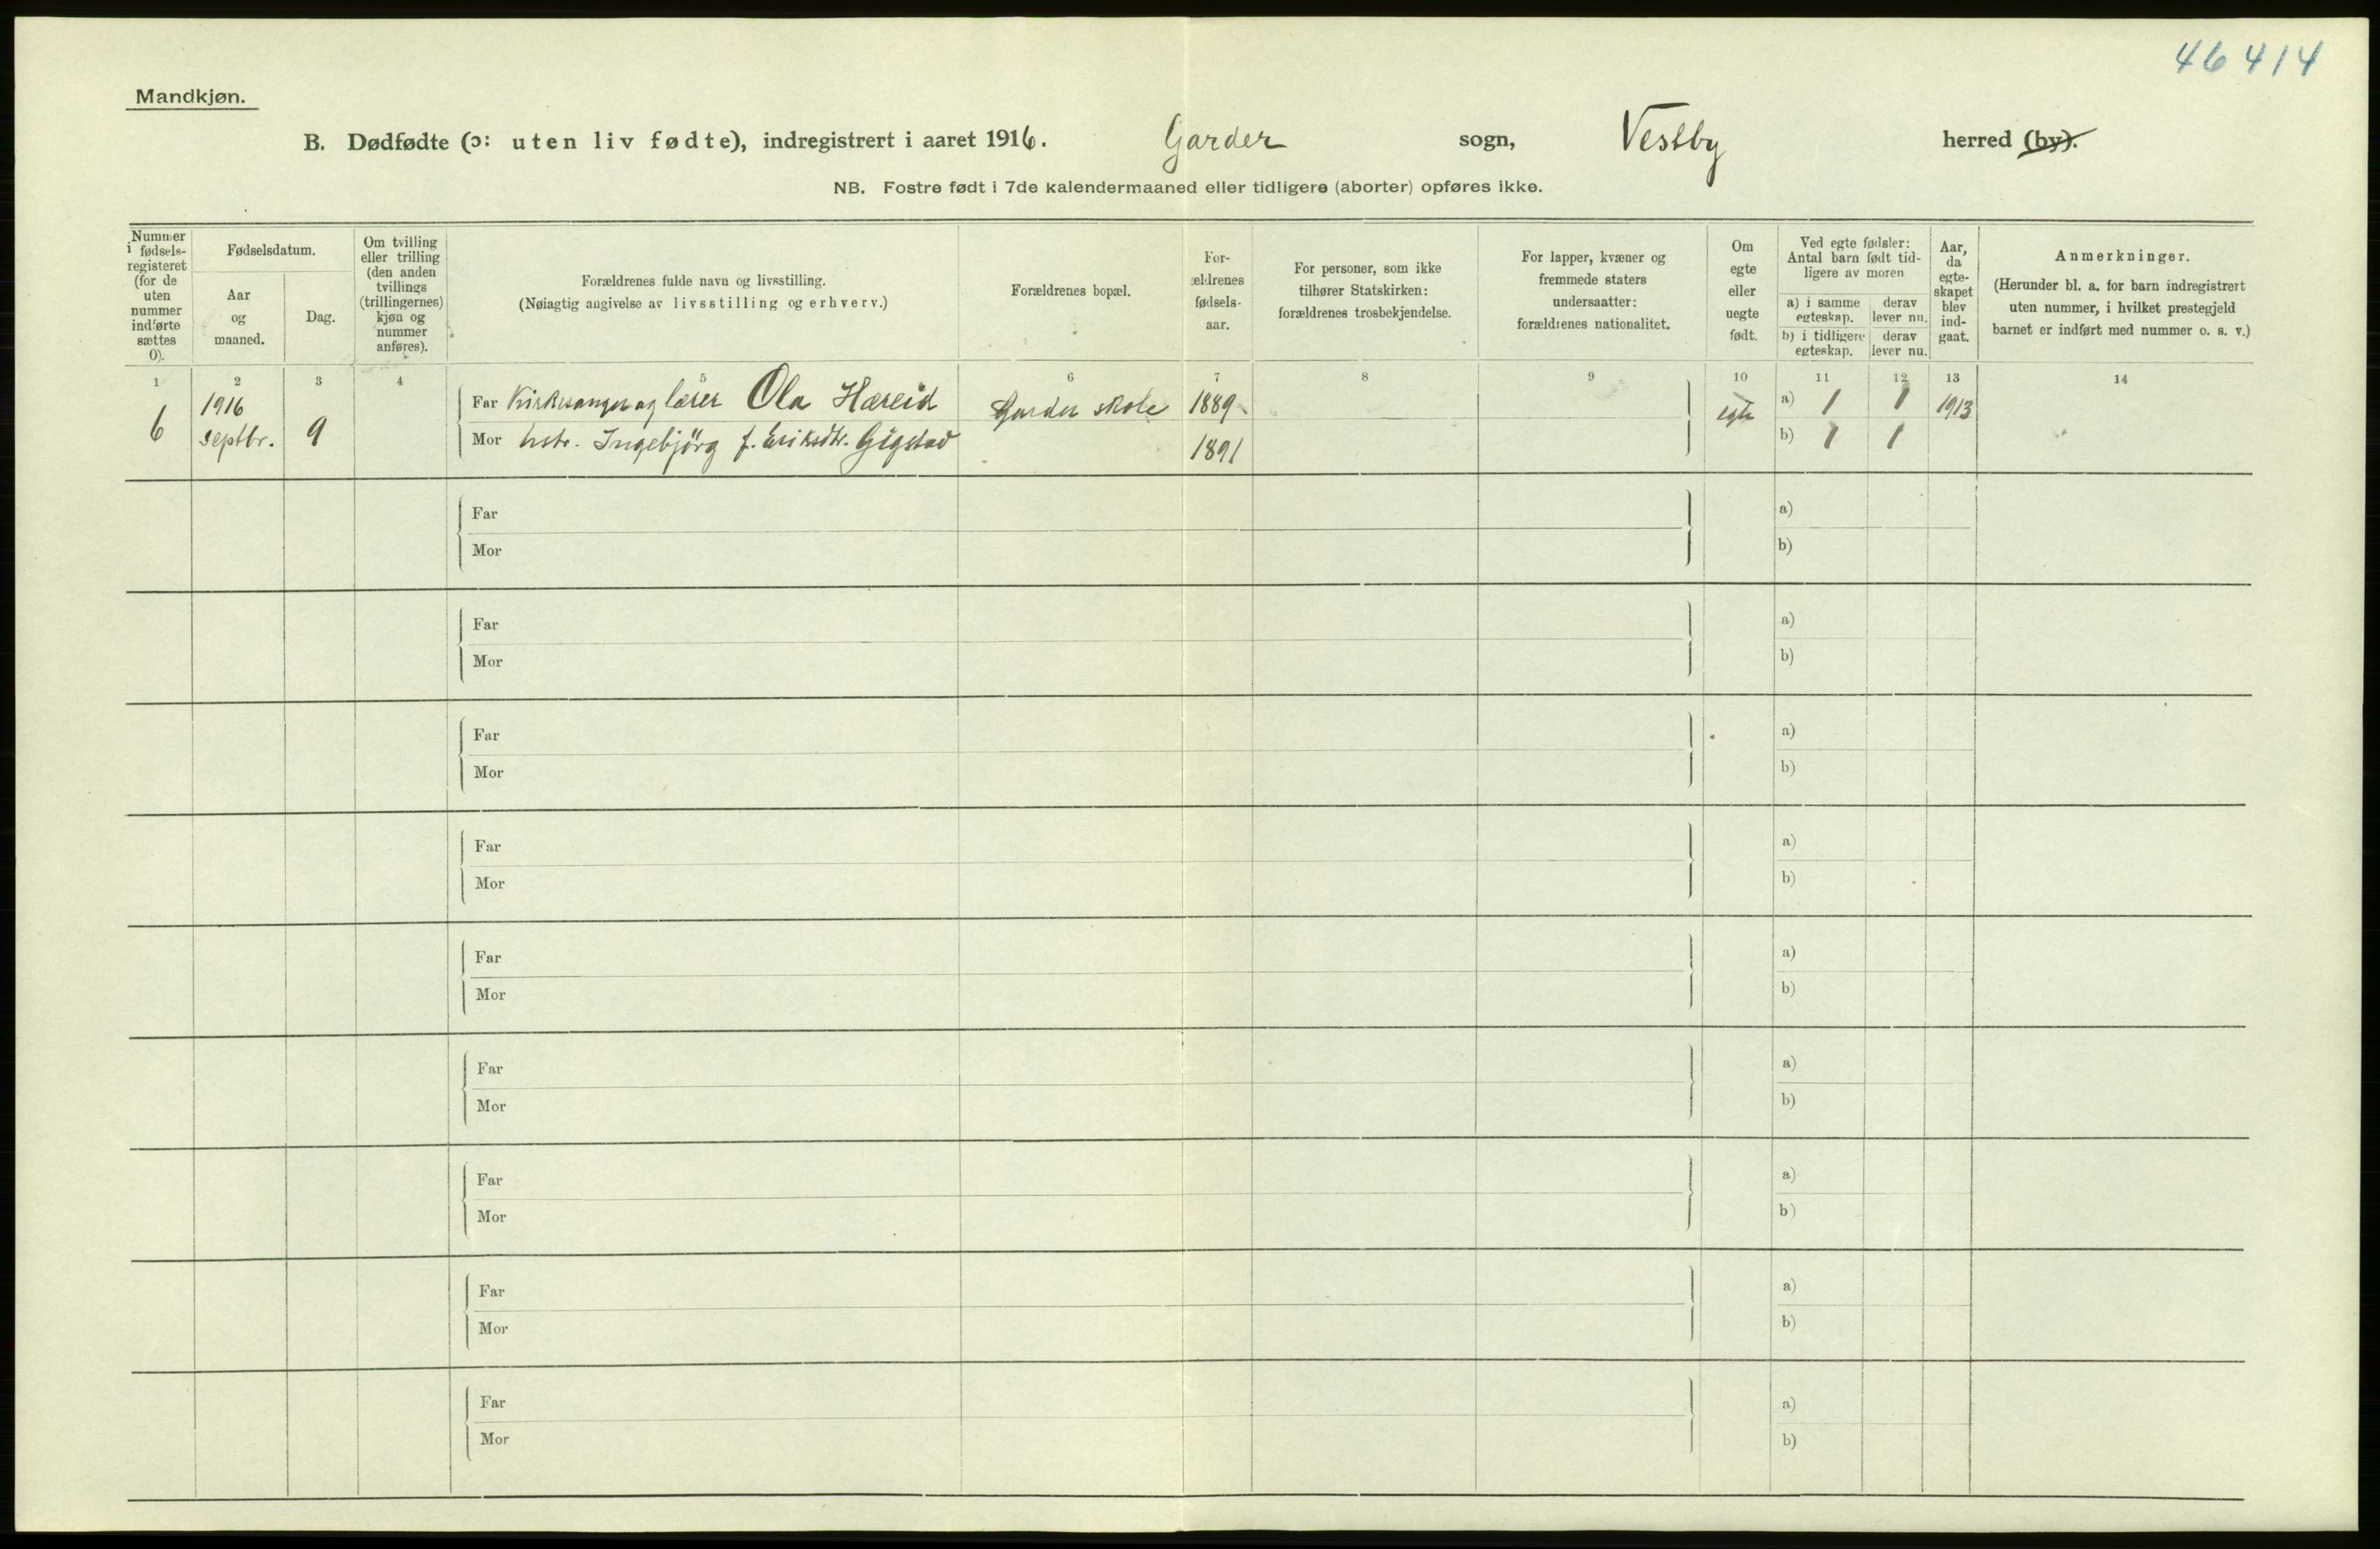 46 414
Mandkjøn.
B. Dødfødte (ɔ: uten liv fødte), indregistrert i aaret 1916. Garder sogn, Vestby herred (by).
NB. Fostre født i 7de kalendermaaned eller tidligere (aborter) opføres ikke.
Nummer
i fødsels-
registeret
(for de
uten
nummer
indførte
sættes
0).
Fødselsdatum.
Aar
og
maaned.
Dag.
Om tvilling
eller trilling
(den anden
tvillings
(trillingernes)
kjøn og
nummer
anføres).
Forældrenes fulde navn og livsstilling.
(Nøiagtig angivelse av livsstilling og erhverv.)
Forældrenes bopæl.
For-
ældrenes
fødsels-
aar.
For personer, som ikke
tilhører Statskirken:
forældrenes trosbekjendelse.
For lapper, kvæner og
fremmede staters
undersaatter:
forældrenes nationalitet.
Om
egte
eller
uegte
født.
Ved egte fødsler:
Antal barn født tid-
ligere av moren
a) i samme
egteskap.
derav
lever nu.
b) i tidligere
egteskap.
derav
lever nu.
Aar,
da
egte-
skapet
blev
ind-
gaat.
Anmerkninger.
(Herunder bl. a. for barn indregistrert
uten nummer, i hvilket prestegjeld
barnet er indført med nummer o. s. v.)
1 2 3 4 5 6 7 8 9 10 11 12 13 14
6 1916 Septbr. 9
Far Kirkesanger og lærer Ola Hæreid Garder skole 1889 egte a) 1 1 1913
Mor hstr. Ingebjörg f. Eriksdtr. Gigstad 1891 b) 1 1
Far a)
Mor b)
Far a)
Mor b)
Far a)
Mor b)
Far a)
Mor b)
Far a)
Mor b)
Far a)
Mor b)
Far a)
Mor b)
Far a)
Mor b)
Far a)
Mor b)